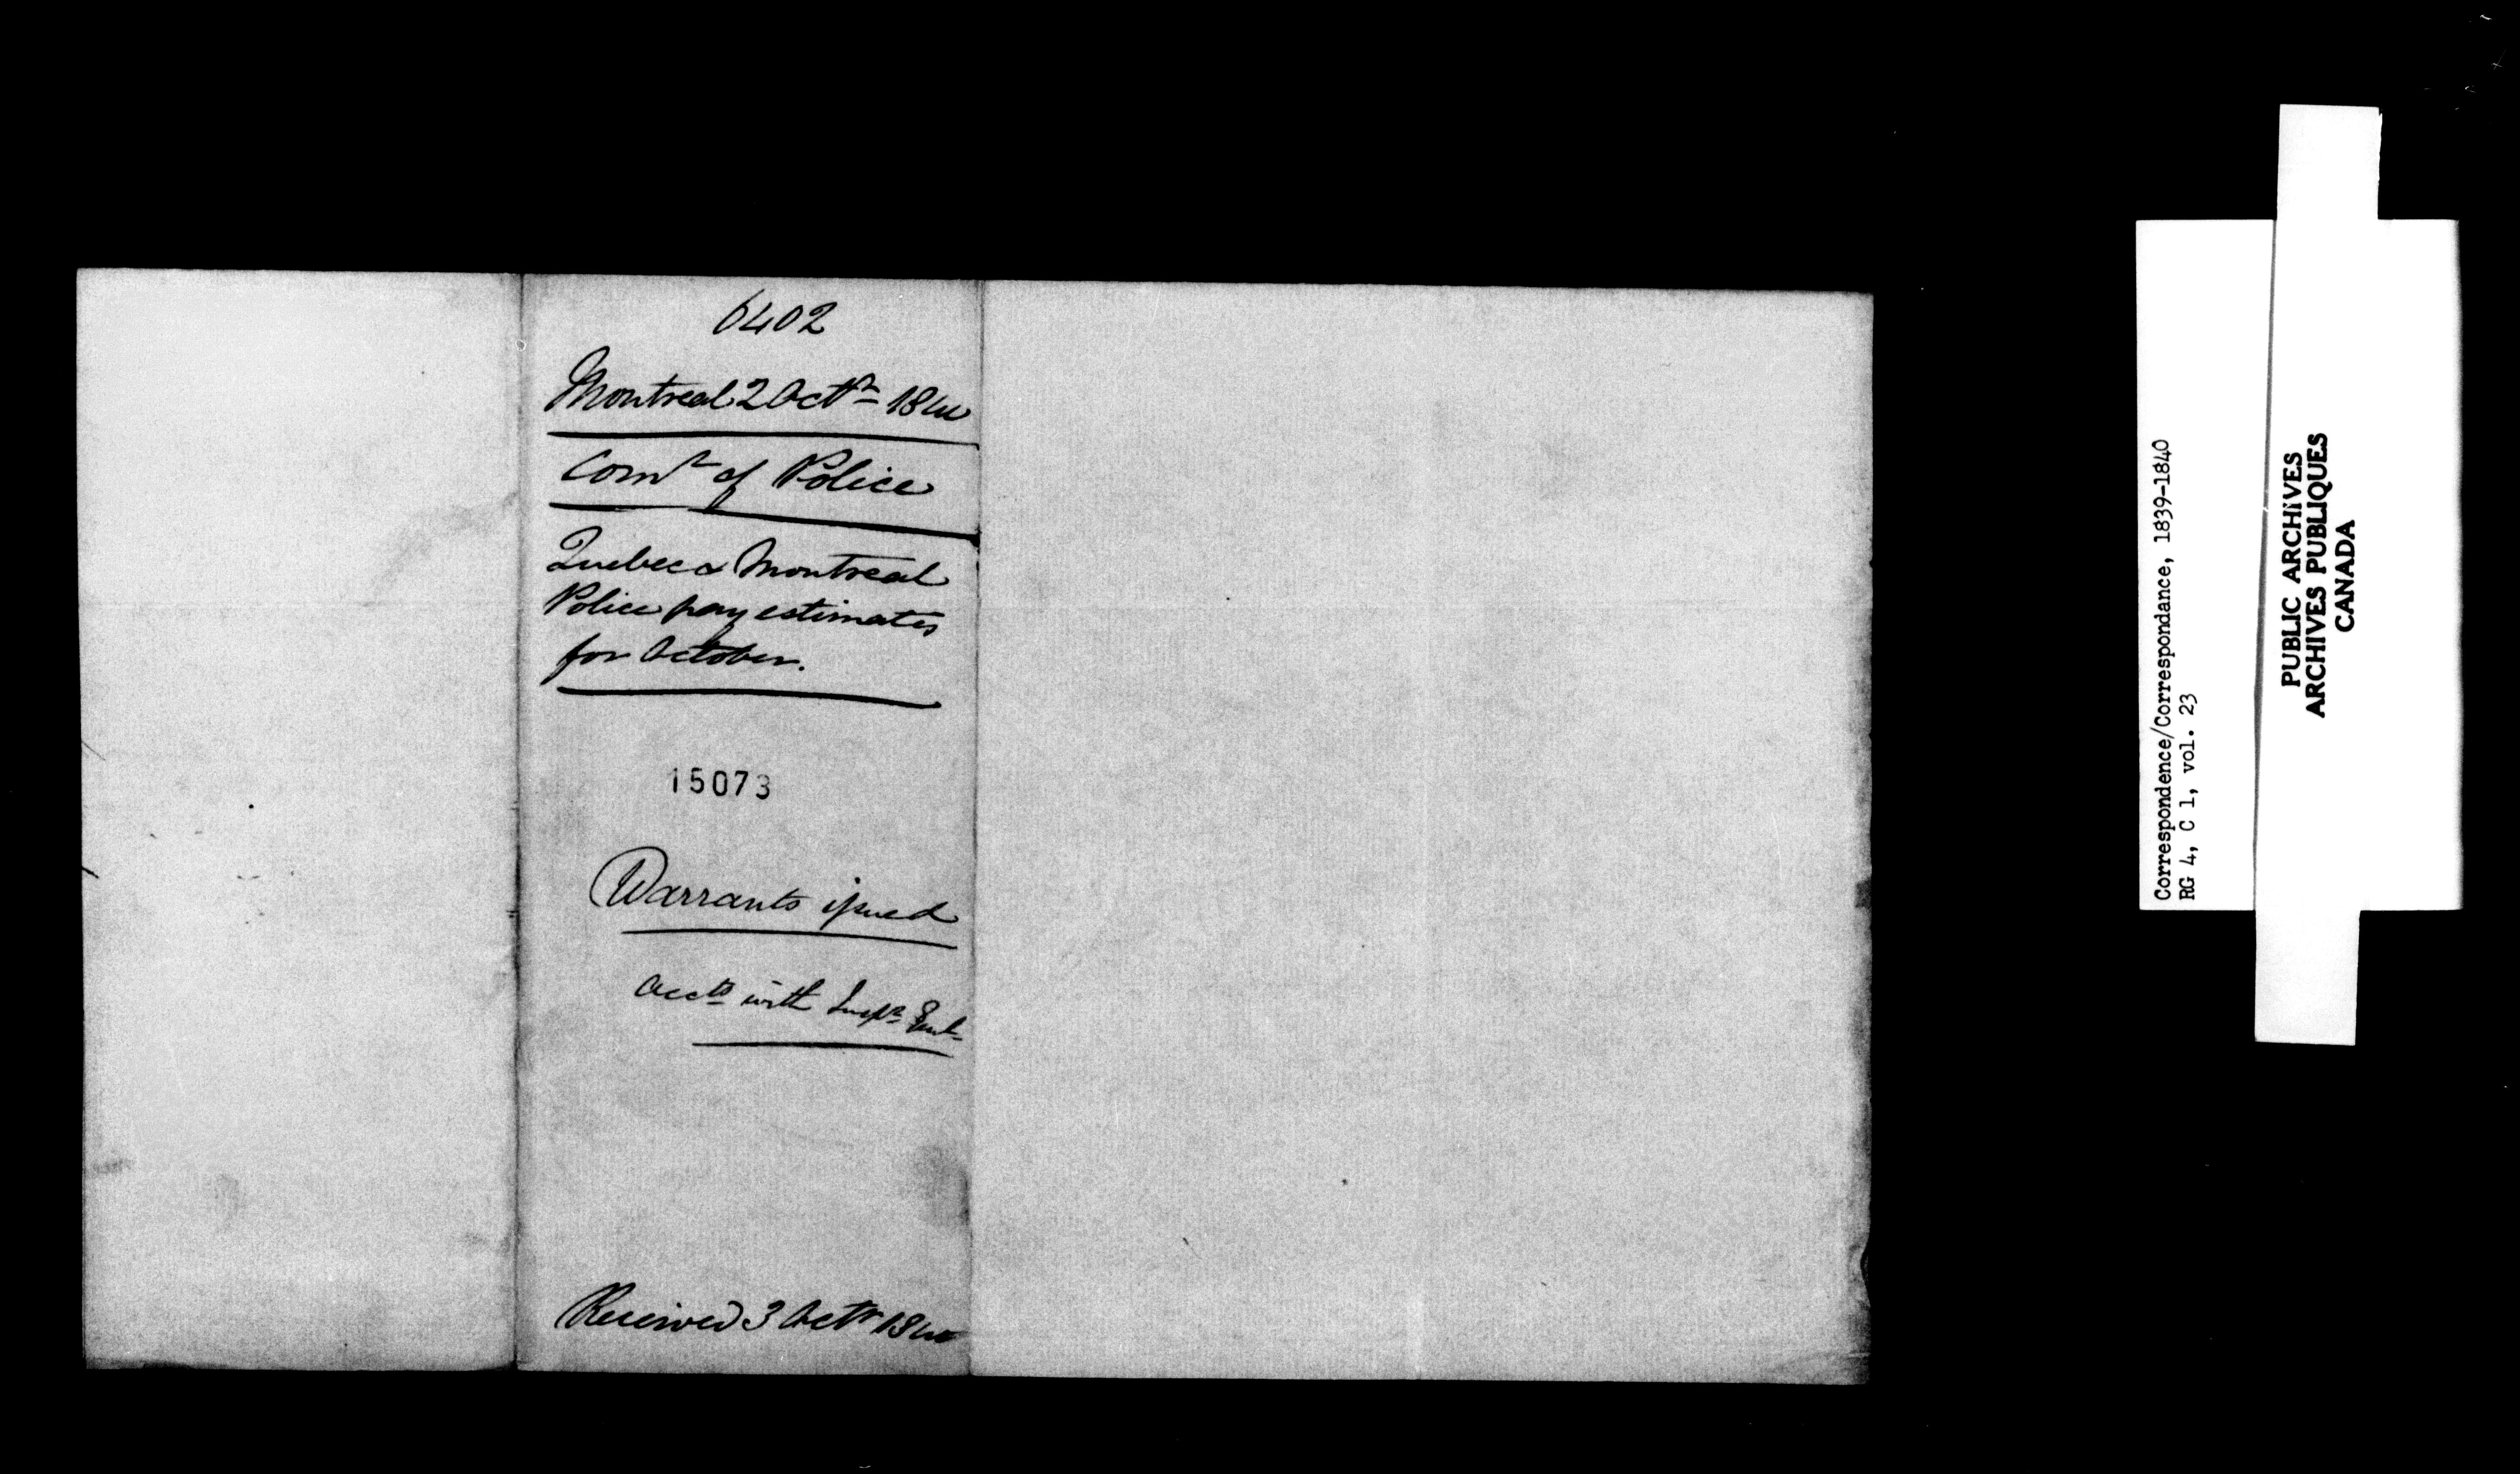 6402
Montreal 2 Octr 1840
Comr of Police
Quebec & Montreal
Police pay estimates
for October.
15073
Warrants issued
Accts with Inspr Genl
Received 3 Octr 1840
Correspondence/Correspondance, 1839-1840
RG 4, C 1, vol. 23
PUBLIC ARCHIVES
ARCHIVES PUBLIQUES
CANADA